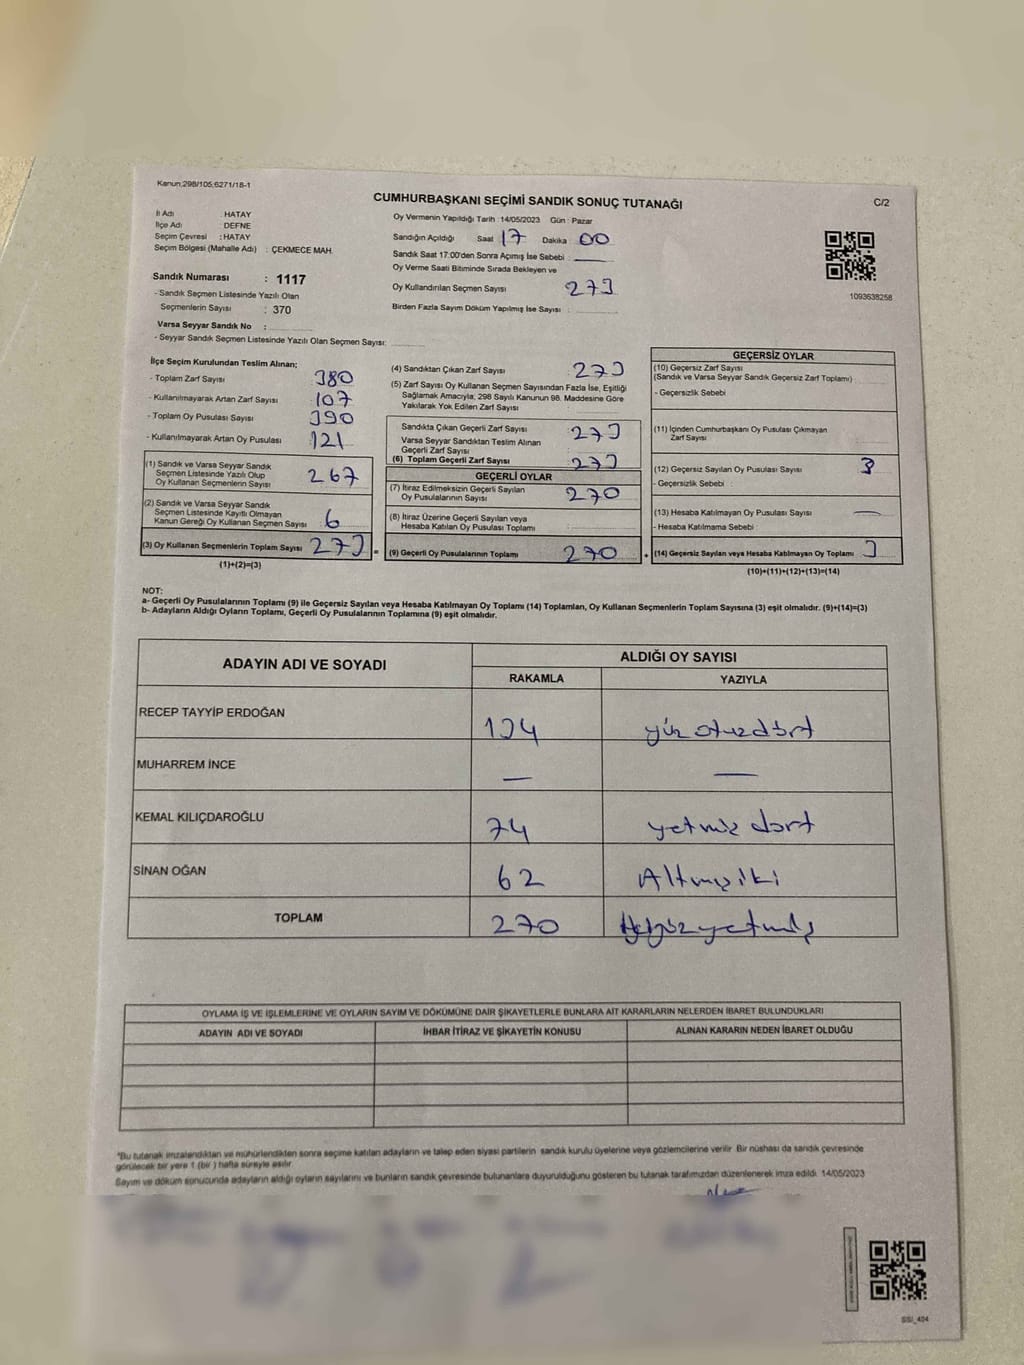 Kanun;298/105,6271/18-1
CUMHURBAŞKANI SEÇİMİ SANDIK SONUÇ TUTANAĞI
C/2
İl Adı : HATAY
İlçe Adı : DEFNE
Seçim Çevresi : HATAY
Seçim Bölgesi (Mahalle Adı) : ÇEKMECE MAH.
Sandık Numarası : 1117
- Sandık Seçmen Listesinde Yazılı Olan
Seçmenlerin Sayısı : 370
Varsa Seyyar Sandık No :
- Seyyar Sandık Seçmen Listesinde Yazılı Olan Seçmen Sayısı:
Oy Vermenin Yapıldığı Tarih : 14/05/2023 Gün : Pazar
Sandığın Açıldığı Saat 17 Dakika : 00
Sandık Saat 17:00'den Sonra Açımış İse Sebebi : —
Oy Verme Saati Bitiminde Sırada Bekleyen ve
Oy Kullandırılan Seçmen Sayısı 273
Birden Fazla Sayım Döküm Yapılmış İse Sayısı :
1093638258
İlçe Seçim Kurulundan Teslim Alınan;
- Toplam Zarf Sayısı 380
- Kullanılmayarak Artan Zarf Sayısı 107
- Toplam Oy Pusulası Sayısı 390
- Kullanılmayarak Artan Oy Pusulası 121
(1) Sandık ve Varsa Seyyar Sandık
Seçmen Listesinde Yazılı Olup
Oy Kullanan Seçmenlerin Sayısı 267
(2) Sandık ve Varsa Seyyar Sandık
Seçmen Listesinde Kayıtlı Olmayan
Kanun Gereği Oy Kullanan Seçmen Sayısı 6
(3) Oy Kullanan Seçmenlerin Toplam Sayısı 273 =
(1)+(2)=(3)
(4) Sandıktan Çıkan Zarf Sayısı : 273
(5) Zarf Sayısı Oy Kullanan Seçmen Sayısından Fazla İse, Eşitliği
Sağlamak Amacıyla, 298 Sayılı Kanunun 98. Maddesine Göre
Yakılarak Yok Edilen Zarf Sayısı :
Sandıkta Çıkan Geçerli Zarf Sayısı : 273
Varsa Seyyar Sandıktan Teslim Alınan
Geçerli Zarf Sayısı :
(6) Toplam Geçerli Zarf Sayısı : 273
GEÇERLİ OYLAR
(7) İtiraz Edilmeksizin Geçerli Sayılan
Oy Pusulalarının Sayısı : 270
(8) İtiraz Üzerine Geçerli Sayılan veya
Hesaba Katılan Oy Pusulası Toplamı :
(9) Geçerli Oy Pusulalarının Toplamı 270 +
GEÇERSİZ OYLAR
(10) Geçersiz Zarf Sayısı
(Sandık ve Varsa Seyyar Sandık Geçersiz Zarf Toplamı)
- Geçersizlik Sebebi
(11) İçinden Cumhurbaşkanı Oy Pusulası Çıkmayan
Zarf Sayısı
(12) Geçersiz Sayılan Oy Pusulası Sayısı : 3
- Geçersizlik Sebebi :
(13) Hesaba Katılmayan Oy Pusulası Sayısı : —
- Hesaba Katılmama Sebebi :
(14) Geçersiz Sayılan veya Hesaba Katılmayan Oy Toplamı : 3
(10)+(11)+(12)+(13)=(14)
NOT:
a- Geçerli Oy Pusulalarının Toplamı (9) ile Geçersiz Sayılan veya Hesaba Katılmayan Oy Toplamı (14) Toplamları, Oy Kullanan Seçmenlerin Toplam Sayısına (3) eşit olmalıdır. (9)+(14)=(3)
b- Adayların Aldığı Oyların Toplamı, Geçerli Oy Pusulalarının Toplamına (9) eşit olmalıdır.
ADAYIN ADI VE SOYADI ALDIĞI OY SAYISI
RAKAMLA YAZIYLA
RECEP TAYYİP ERDOĞAN 134 yüz otuzdört
MUHARREM İNCE — —
KEMAL KILIÇDAROĞLU 74 yetmiş dört
SİNAN OĞAN 62 Altmışiki
TOPLAM 270 ikiyüzyetmiş
OYLAMA İŞ VE İŞLEMLERİNE VE OYLARIN SAYIM VE DÖKÜMÜNE DAİR ŞİKAYETLERLE BUNLARA AİT KARARLARIN NELERDEN İBARET BULUNDUKLARI
ADAYIN ADI VE SOYADI İHBAR İTİRAZ VE ŞİKAYETİN KONUSU ALINAN KARARIN NEDEN İBARET OLDUĞU
*Bu tutanak imzalandıktan ve mühürlendikten sonra seçime katılan adayların ve talep eden siyasi partilerin sandık kurulu üyelerine veya gözlemcilerine verilir. Bir nüshası da sandık çevresinde
görülecek bir yere 1 (bir ) hafta süreyle asılır.
Sayım ve döküm sonucunda adayların aldığı oyların sayılarını ve bunların sandık çevresinde bulunanlara duyurulduğunu gösteren bu tutanak tarafımızdan düzenlenerek imza edildi. 14/05/2023
SSI_404